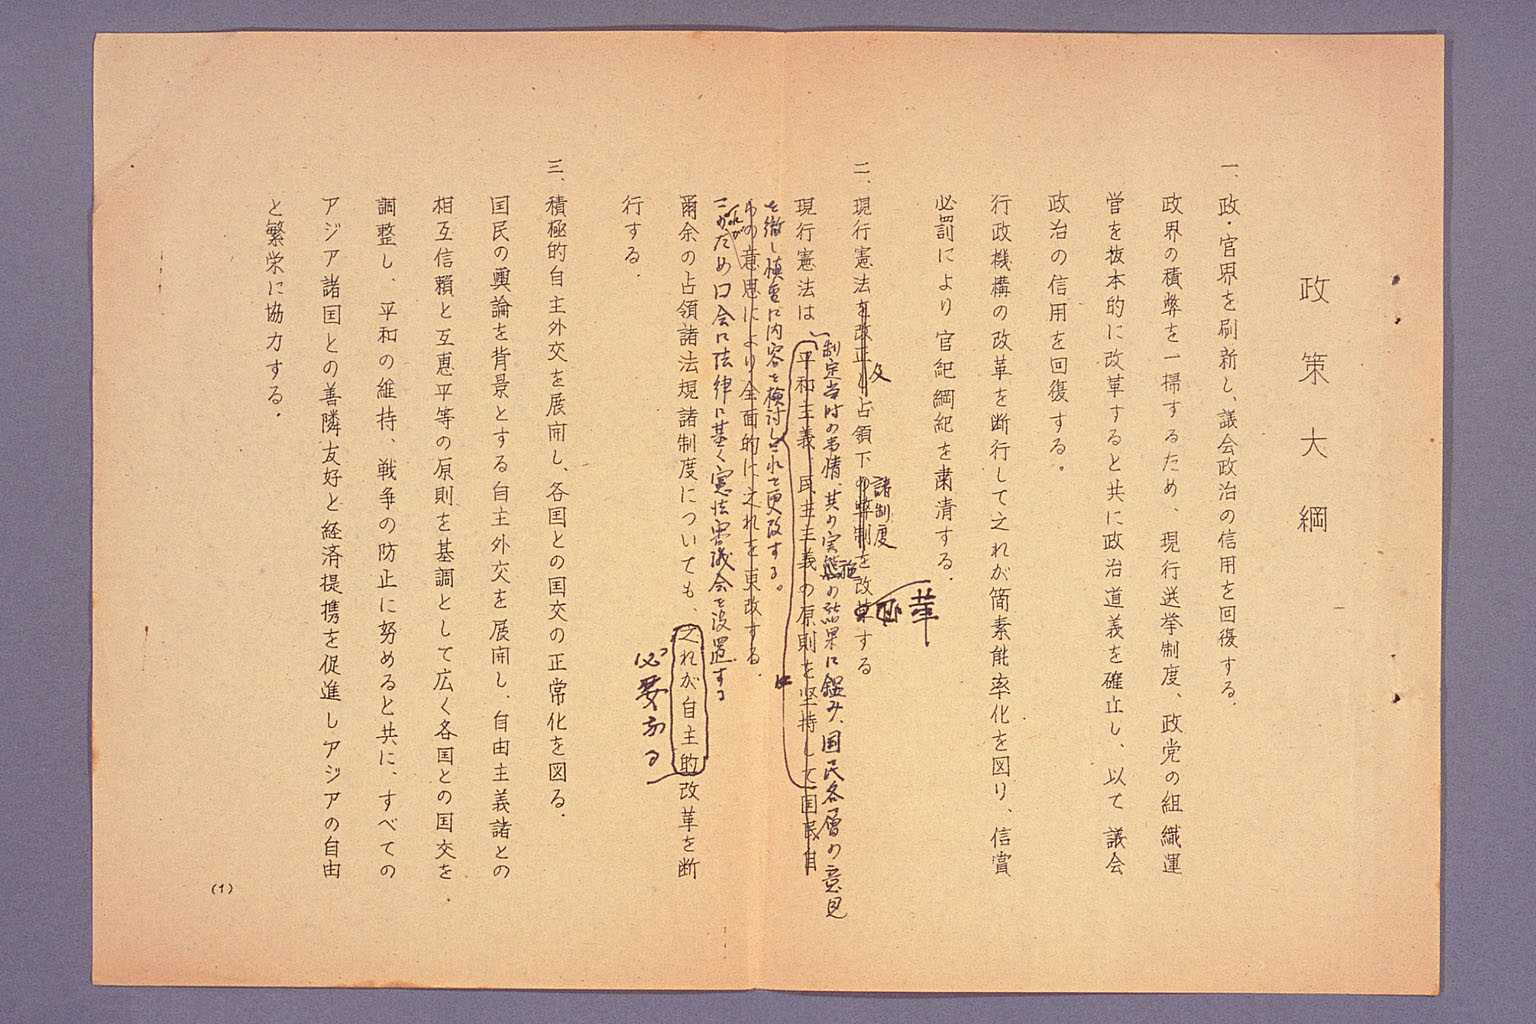 政策大綱
一、政・官界を刷新し、議会政治の信用を回復する.
政界の積弊を一掃するため、現行選挙制度、政党の組織運
営を抜本的に改革すると共に政治道義を確立し、以て議会
政治の信用を回復する。
行政機構の改革を断行して之れが簡素能率化を図り、信賞
必罰により官紀綱紀を粛清する.
諸制度
及
二、現行憲法を改正し占領下の弊制を改革する
制定当時の事情、其の実施の結果に鑑み、国民各層の意見
現行憲法は平和主義、民主主義の原則を堅持して国民自
を徴し慎重に内容を検討しこれを更改する。
らの意思により全面的に之れを更改する.
これがため口会に法律に基く憲法審議会を設置する
爾余の占領諸法規諸制度についても、之れが自主的改革を断
必要なる
行する.
三、積極的自主外交を展開し、各国との国交の正常化を図る.
国民の輿論を背景とする自主外交を展開し、自由主義諸との
相互信頼と互恵平等の原則を基調として広く各国との国交を
調整し、平和の維持、戦争の防止に努めると共に、すべての
アジア諸国との善隣友好と経済提携を促進しアジアの自由
と繁栄に協力する.
(1)